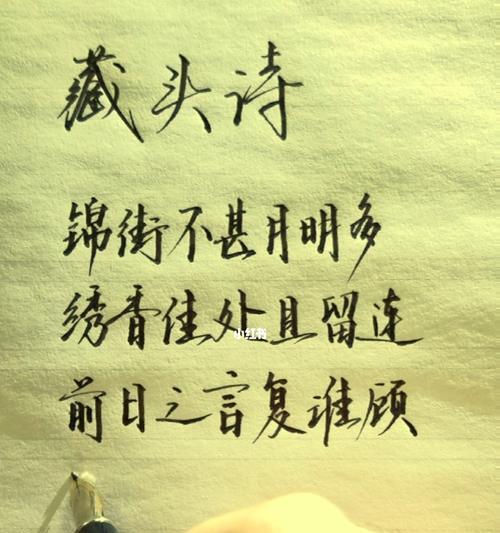 藏头诗
锦街不甚月明多
绣香佳处且留连
小红书
前日之言复谁顾